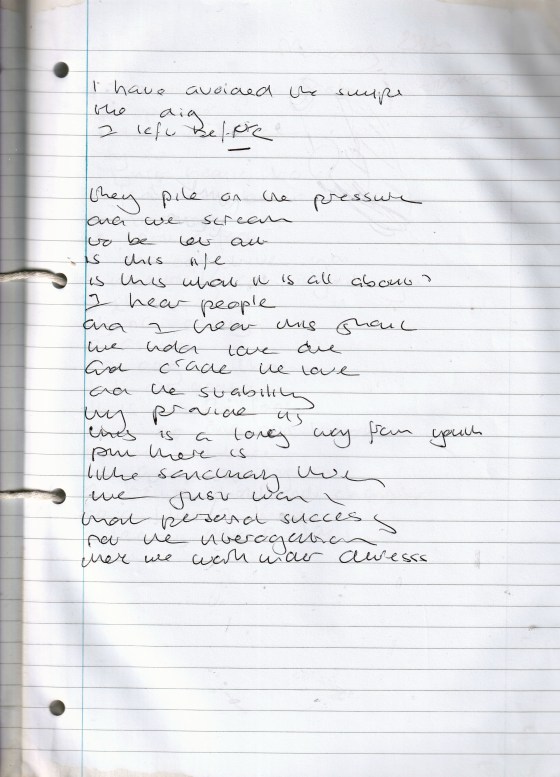 I have avoided the
the dig
I left before
they pile on the pressure
and we scream
to be let out
is this life
is this what it is all about?
I hear people
and I hear this
we love
and the love
and the stability
they provide us
this is a long way from youth
there is
little sanctuary
we just want
that personal success
not the interogation
where we work under duresss